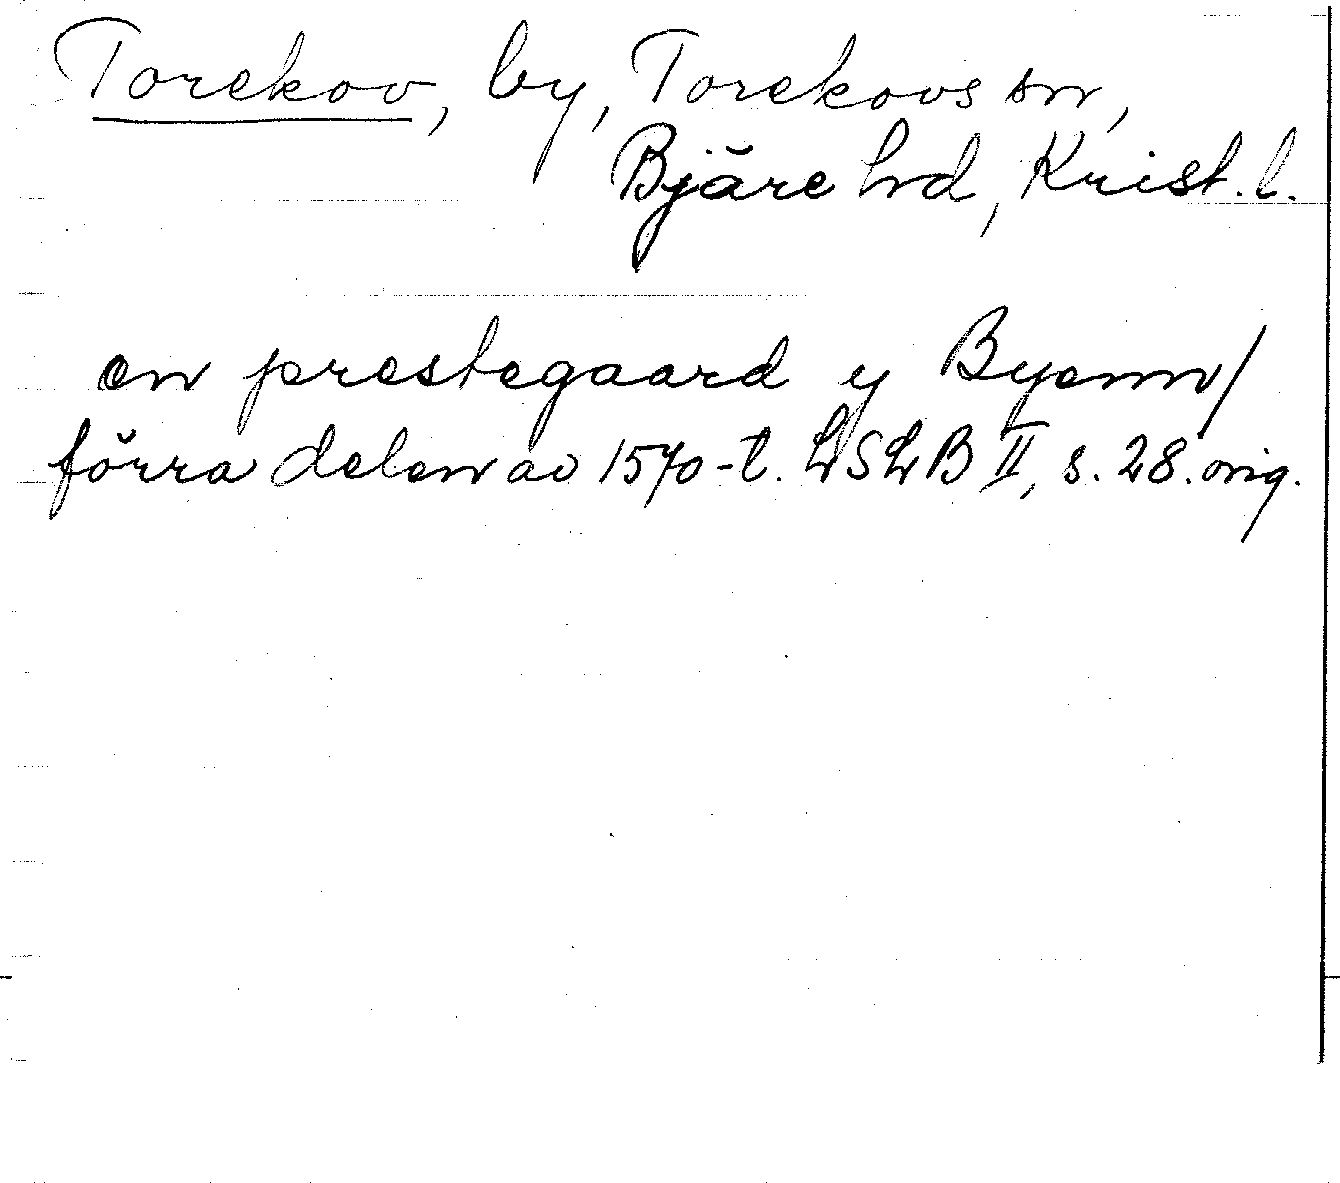 Torekov, by, Torekovs sn,
Bjäre hd, Krist. l.
en prestegaard y Byenn/
förra delen av 1570-t. LSLB II, s. 28. orig.